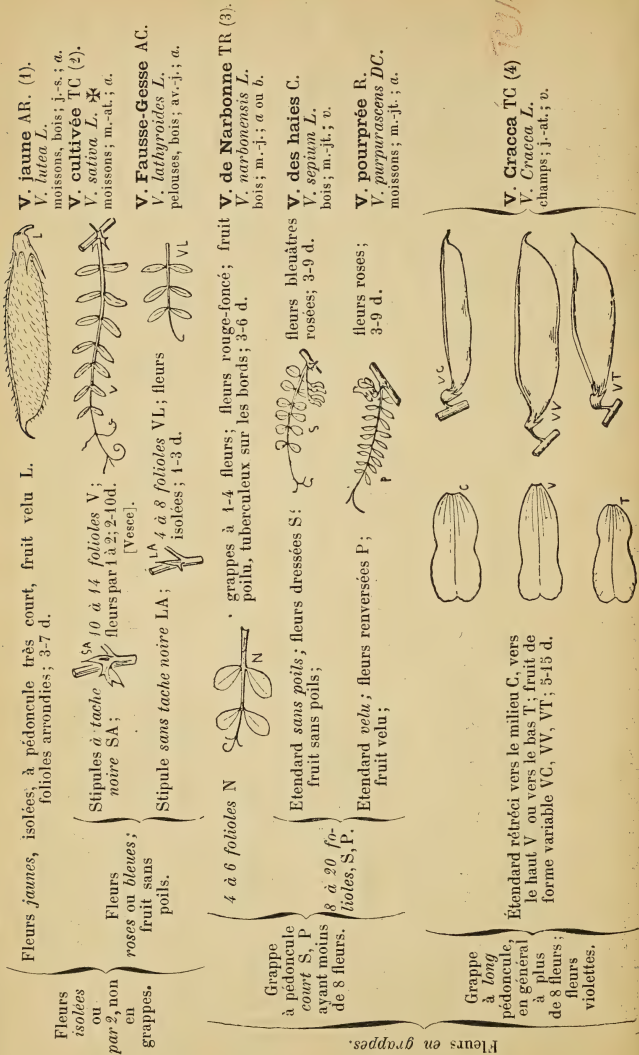 Fleurs
isolées
ou
par 2, non
en
grappes.
Fleurs jaunes, isolées, à pédoncule très court, fruit velu L.
folioles arrondies ; 3-7 d.
L
V. jaune AR. (1).
V. lutea L.
moissons, bois ; j.-s. ; a.
Fleurs
roses ou bleues ;
fruit sans
poils.
Stipules à tache
noire SA ;
SA
10 à 14 folioles V ;
fleurs par 1 à 2 ; 2-10d.
[Vesce].
V
V. cultivée TC (2).
V. sativa L. ✠
moissons ; m.-at. ; a.
Stipule sans tache noire LA ;
LA
4 à 8 folioles VL ; fleurs
isolées ; 1-3 d.
VL
V. Fausse-Gesse AC.
V. lathyroides L.
pelouses, bois ; av.-j. ; a.
Fleurs en grappes.
Grappe
à pédoncule
court S, P
ayant moins
de 8 fleurs.
4 à 6 folioles N
N
grappes à 1-4 fleurs ; fleurs rouge-foncé ; fruit
poilu, tuberculeux sur les bords ; 3-6 d.
V. de Narbonne TR (3).
V. narbonensis L.
bois ; m.-j. ; a ou b.
8 à 20 fo-
lioles, S, P.
Etendard sans poils ; fleurs dressées S ;
fruit sans poils ;
S
fleurs bleuâtres
rosées ; 3-9 d.
V. des haies C.
V. sepium L.
bois ; m.-jt. ; v.
Etendard velu ; fleurs renversées P ;
fruit velu ;
P
fleurs roses ;
3-9 d.
V. pourprée R.
V. purpurascens DC.
moissons ; m.-jt. ; a.
Grappe
à long
pédoncule,
en général
à plus
de 8 fleurs ;
fleurs
violettes.
Étendard rétréci vers le milieu C, vers
le haut V ou vers le bas T ; fruit de
forme variable VC, VV, VT ; 5-15 d.
C
V
T
VC
VV
VT
V. Cracca TC (4)
V. Cracca L.
champs ; j.-at. ; v.